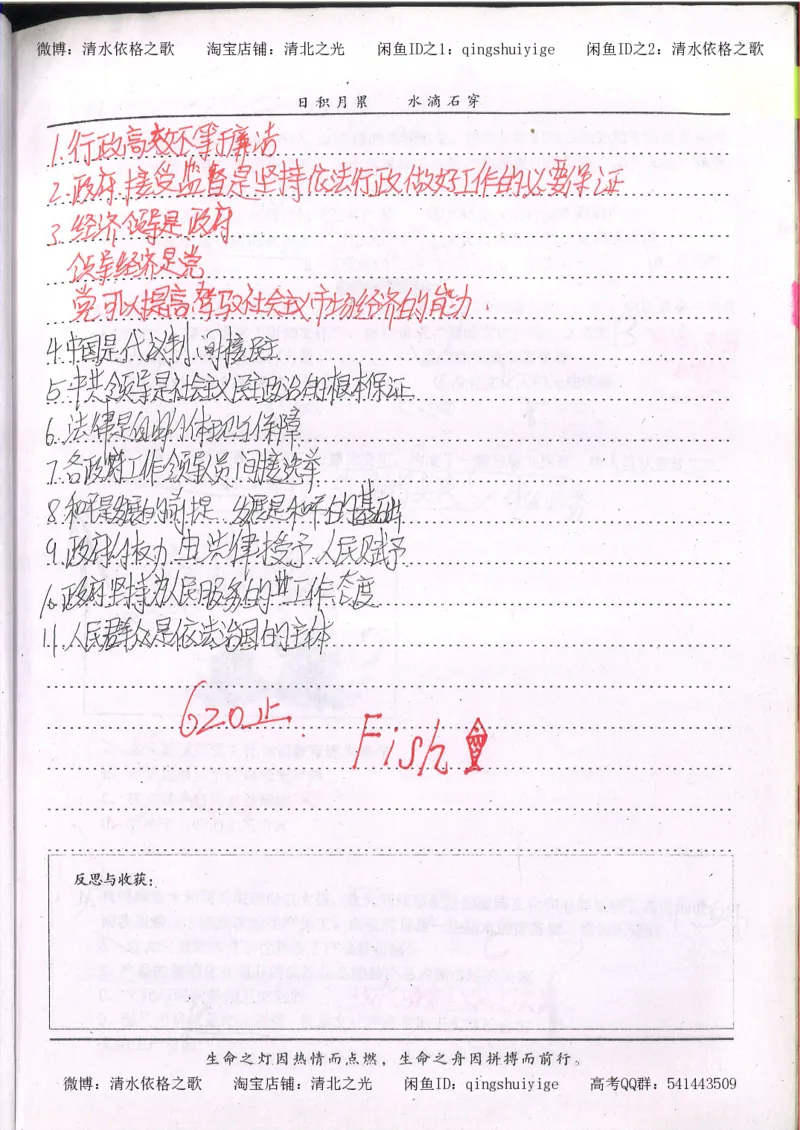 微博：清水依格之歌 淘宝店铺：清北之光 闲鱼ID之1：qingshuiyige 闲鱼ID之2：清水依格之歌
日积月累 水滴石穿
1.行政高效不等于廉洁
2.政府接受监督是坚持依法行政做好工作的必要保证
3.经济领导是政府
领导经济是党
党可以提高驾驭社会主义市场经济的能力.
4.中国是代议制,间接民主
5.中共领导是社会主义民主政治的根本保证
6.法律是自由的体现与保障
7.各政府工作领导人员间接选举
8.和平是发展的前提,发展是和平的基础
9.政府的权力由法律授予,人民赋予
10.政府坚持为人民服务的工作态度
11.人民群众是依法治国的主体
620止
Fish
反思与收获：
生命之灯因热情而点燃，生命之舟因拼搏而前行。
微博：清水依格之歌 淘宝店铺：清北之光 闲鱼ID：qingshuiyige 高考QQ群：541443509